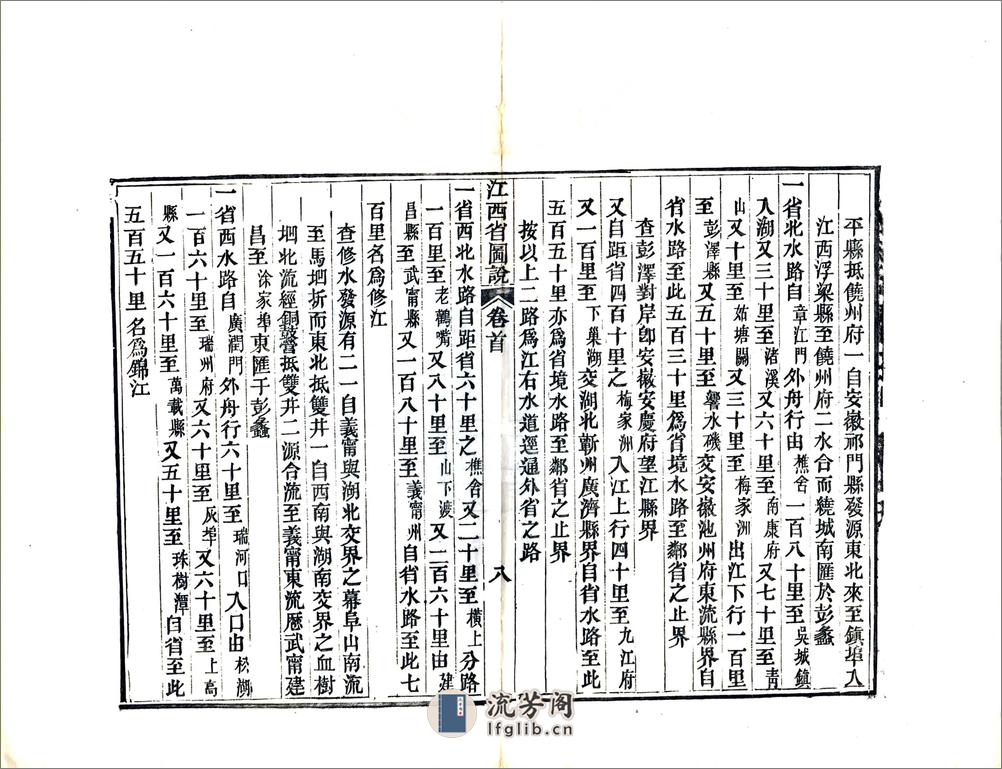 平縣抵饒州府一自安徽祁門縣發源東北來至鎮埠入
江西浮梁縣至饒州府二水合而繞城南匯於彭蠡
一省北水路自章江門外舟行由樵舍一百八十里至吳城鎮
入湖又三十里至渚溪又六十里至南康府又七十里至青
山又十里至姑塘關又三十里至梅家洲出江下行一百里
至彭澤縣又五十里至響水磯交安徽池州府東流縣界自
省水路至此五百三十里爲省境水路至鄰省之止界
查彭澤對岸卽安徽安慶府望江縣界
又自距省四百十里之梅家洲入江上行四十里至九江府
又一百里至下巢湖交湖北蘄州廣濟縣界自省水路至此
五百五十里亦爲省境水路至鄰省之止界
按以上二路爲江右水道逕通外省之路
江西省圖說 卷首 八
一省西北水路自距省六十里之樵舍又二十里至橫上分路
一百里至老鸛嘴又八十里至山下渡又二百六十里由建
昌縣至武甯縣又一百八十里至義甯州自省水路至此七
百里名爲修江
查修水發源有二一自義甯與湖北交界之幕阜山南流
至馬坳折而東北抵雙井一自西南與湖南交界之血樹
坳北流經銅鼓營抵雙井二源合流至義甯東流歷武甯建
昌至涂家埠東匯于彭蠡
一省西水路自廣潤門外舟行六十里至瑞河口入口由松湖
一百六十里至瑞州府又六十里至灰埠又六十里至上高
縣又一百六十里至萬載縣又五十里至珠樹潭自省至此
五百五十里名爲錦江
流芳阁
lfglib.cn